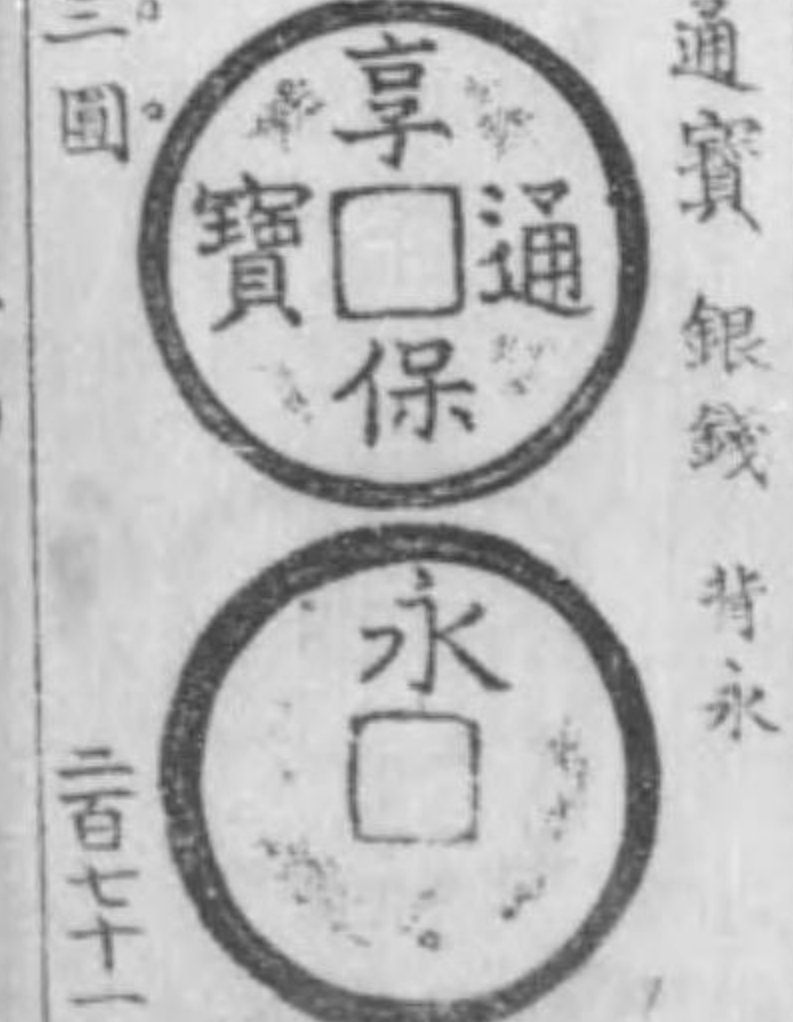 通寳 銀錢 背永
享保通寶
永
三圓
二百七十一